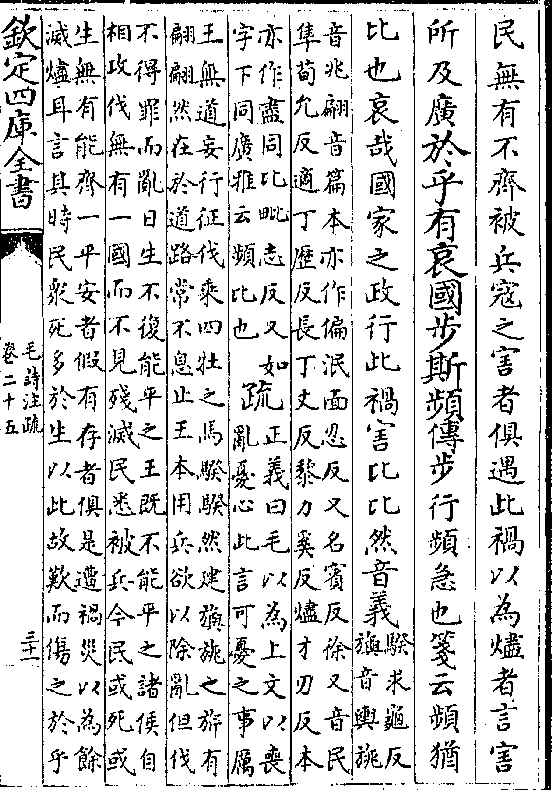 民無有不齊被兵寇之害者俱遇此禍以為燼者言害
所及廣於乎有哀國步斯頻傳步行頻急也箋云頻猶
比也哀哉國家之政行此禍害比比然音義騤求龜反
旟音輿旐
音兆翩音篇本亦作偏泯面忍反又名賓反徐又音民
隼荀允反適丁歴反長丁丈反黎力奚反燼才刃反本
亦作盡同比毗志反又如
字下同廣雅云頻比也
疏正義曰毛以為上文以喪
亂憂心此言可憂之事厲
王無道妄行征伐乘四牡之馬騤騤然建旟旐之旂有
翩翩然在於道路常不息止王本用兵欲以除亂但伐
不得罪而亂日生不復能平之王既不能平之諸侯自
相攻伐無有一國而不見殘滅民悉被兵今民或死或
生無有能齊一平安者假有存者俱是遭禍災以為餘
滅燼耳言其時民衆死多於生以此故歎而傷之於乎
欽定四庫全書
毛詩注疏
卷二十五
三十一